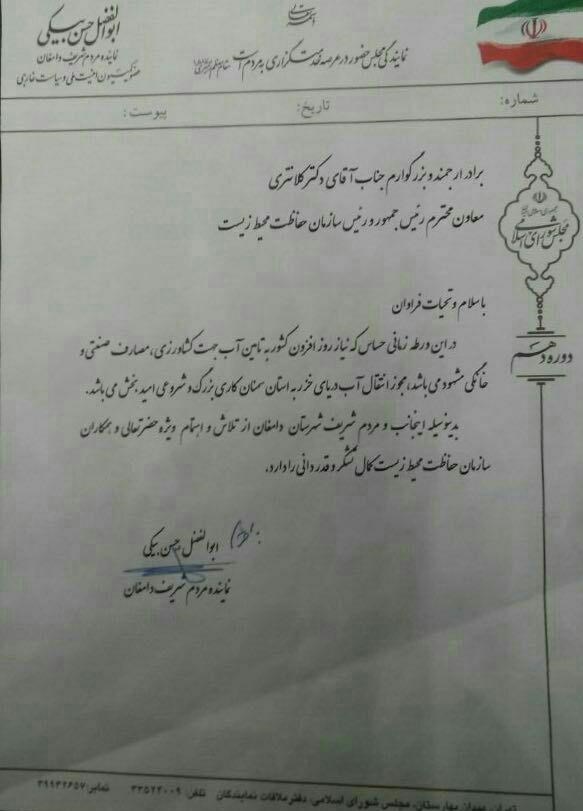 ابوالفضل حسن بیگی
نماینده مردم شریف دامغان
عضو کمیسیون امنیت ملی و سیاست خارجی
نمایندگی مجلس حضور در عرصه خدمتگزاری به مردم است
شماره:
تاریخ:
پیوست:
جمهوری اسلامی ایران
مجلس شورای اسلامی
دوره دهم
برادر ارجمند و بزرگوارم جناب آقای دکتر کلانتری
معاون محترم رئیس جمهور و رئیس سازمان حفاظت محیط زیست
با سلام و تحیات فراوان
در این ورطه زمانی حساس که نیاز روز افزون کشور به تامین آب جهت کشاورزی، مصارف صنعتی و
خانگی مشهود می باشد، مجوز انتقال آب دریای خزر به استان سمنان کاری بزرگ و شروعی امید بخش می باشد.
بدینوسیله اینجانب و مردم شریف شهرستان دامغان از تلاش و اهتمام ویژه حضرتعالی و همکاران
سازمان حفاظت محیط زیست کمال تشکر و قدردانی را دارد.
ابوالفضل حسن بیگی
نماینده مردم شریف دامغان
تهران، میدان بهارستان، مجلس شورای اسلامی، دفتر ملاقات نمایندگان تلفن: ۳۳۵۲۴۰۰۹ نمابر: ۳۹۹۳۲۶۵۷